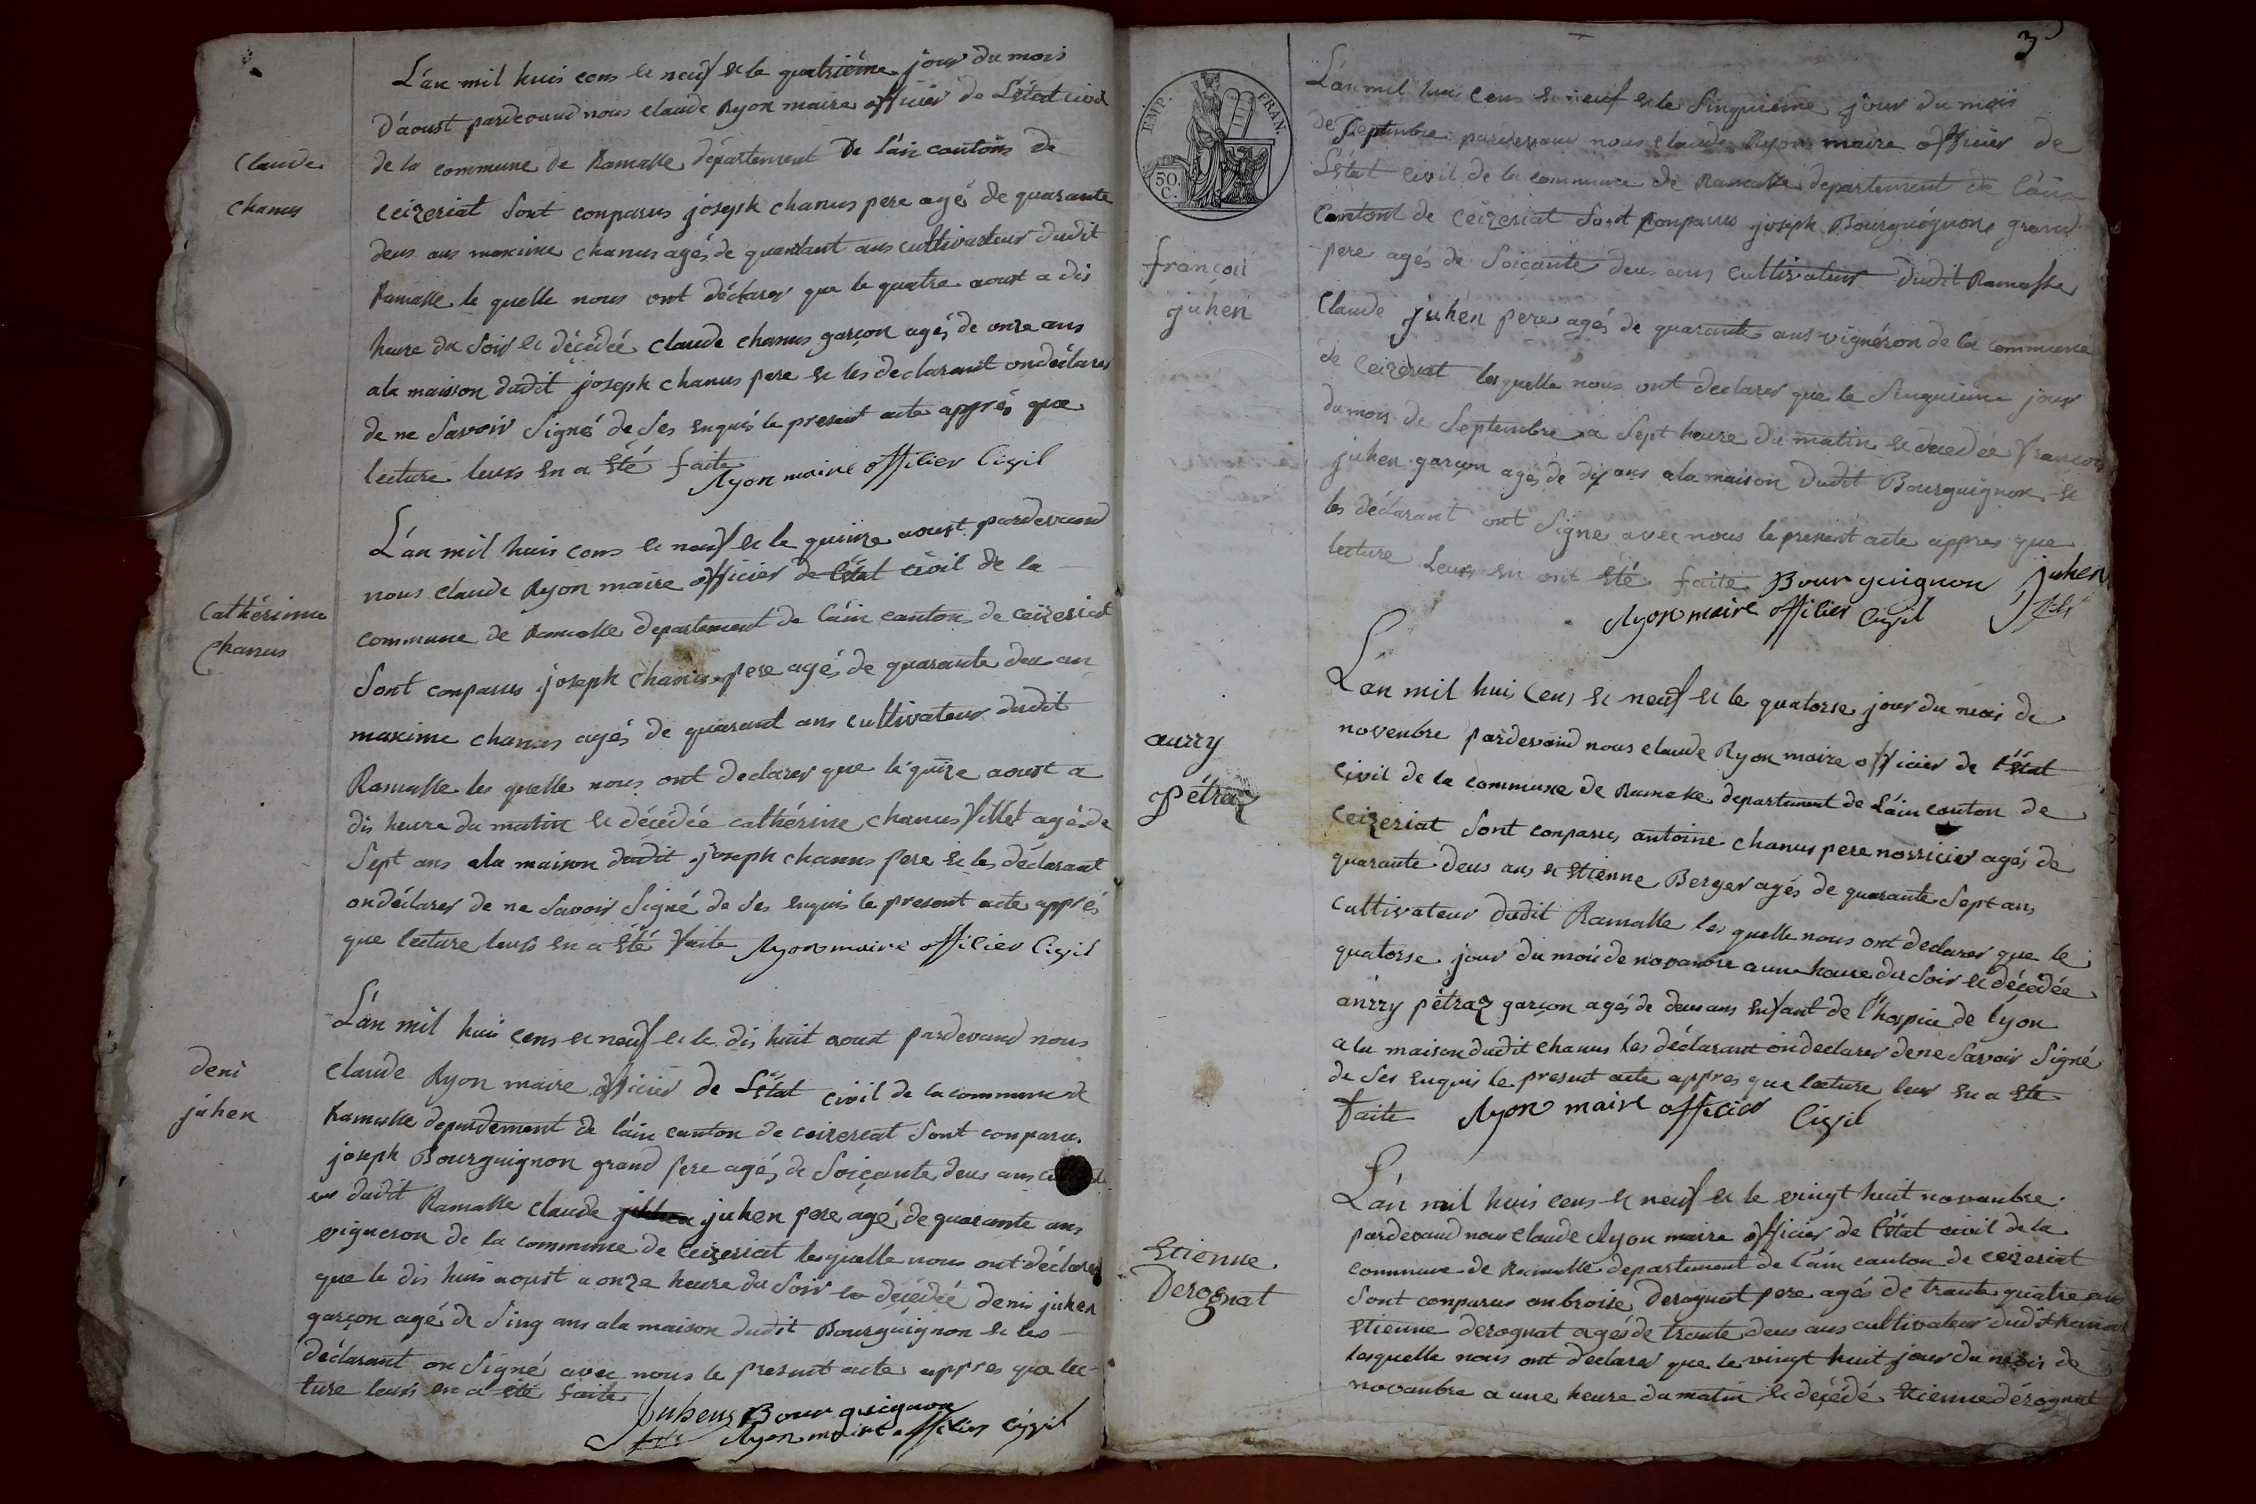 Claude
chanus
L'an mil huis cens et neuf et le quatriéme jour du mois
d'aoust pardevand nous claude Ryon maire officier de L'état civil
de la commune de Ramasse département de l'ain cantons de
ceizeriat sont conparus joseph chanus pere agés de quarante
deus ans maxime chanus agés de quarant ans cultivateur dudit
Ramasse le quelle nous ont déclarer que le quatre aoust a dis
heure du soir et décédée claude chanus garcon agés de onze ans
a la maison dudit joseph chanus pere et les declarant on déclarer
de ne savoir signé de ses enquis le present acte apprés que
lecture leurs en a été faite
Ryon maire offilier Civil
Cathérinne
Chanus
L'an mil huis cens et neuf et le quinze aoust pardevand
nous claude Ryon maire officier de l'état civil de la
commune de Ramasse departement de l'ain cantons de ceizeriat
sont conparus joseph chanus pere agé de quarante deu an
maxime chanus agés de quarant ans cultivateur dudit
Ramasse les quelle nous ont declarer que le quize aoust a
dis heure du matin et décédée cathérine chanus fillet agé de
sept ans a la maison dudit joseph chanus pere et les déclarant
on déclarer de ne savoir signé de ses enquis le present acte apprés
que lecture leurs en a été faite Ryon maire offilier Civil
deni
juhen
L'an mil huis cens et neuf et le dis huit aoust pardevand nous
claude Ryon maire officier de L'état civil de la commune de
Ramasse departement de l'ain canton de ceizeriat sont conparu
joseph Bourguignon grand pere agés de soiçante deus ans
eur dudit Ramasse claude juhen pere agé de quarante ans
vigneron de la commune de Ceizeriat les quelle nous ont déclarer
que le dis huis aoust a onze heure du soir et décédée denis juhen
garçon agé de sinq ans a la maison dudit Bourguignon et les
déclarant on signé avec nous le present acte appres que lec-
ture leurs en a été faite
Juhen Bourguignon
Ryon maire offilier Civil
3
EMP. FRAN.
50. C.
françoi
juhen
L'an mil huis cens et neuf et le sinquieme jour du mois
de septenbre pardevand nous claude Ryon maire officier de
L'état civil de la commune de Ramasse departement de l'ain
Contont de ceizeriat sont conparus joseph Bourguignon grand
pere agés de soiçante deus ans cultivateur dudit Ramasse
Claude juhen pere agés de quarante ans vignéron de la commune
de Ceizeriat les quelle nous ont declarer que le sinquieme jour
du mois de septenbre a sept heure du matin et décédée francois
juhen garçon agés de dix ans a la maison dudit Bourguignon et
les déclarant ont signé avec nous le present acte appres que
lecture leurs en ont été faite Bourguignon juhen
Ryon maire offilier Civil
aurry
Pétraz
L'an mil huis cens et neuf et le quatorse jour du mois de
novenbre pardevand nous claude Ryon maire officier de l'état
civil de la commune de Ramasse departement de L'ain canton de
ceizeriat sont conparus antoine chanus pere norricier agés de
quarante deus ans et Etienne Berger agés de quarante sept ans
cultivateur dudit Ramasse les quelle nous ont declarer que le
quatorse jour du mois de novanbre a une heure du soir et décédée
aurry pétraz garçon agés de deus ans enfant de l'hospice de lyon
a la maison dudit chanus les déclarant on declarer de ne savoir signé
de ses enquis le present acte appres que lecture leur en a été
faite Ryon maire officier Civil
Etienne
Derognat
L'an mil huis cens et neuf et le vingt huit novanbre
pardevand nous claude Ryon maire officier de l'état civil de la
commune de Ramasse departement de l'ain canton de ceizeriat
sont conparus anbroise derognat pere agés de trante quatre ans
Etienne derognat agés de trante deus ans cultivateur dudit
les quelle nous ont declarer que le vingt huit jour du mois de
novanbre a une heure du matin et décédé Etienne dérognat